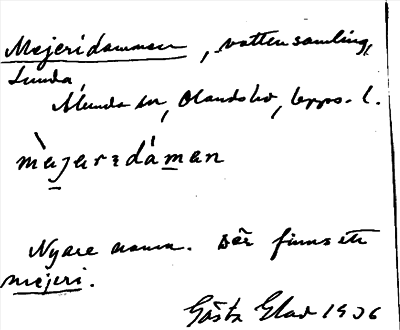 Mejeridammen, vattensamling,
Lunda,
Alunda sn, Olands hd, Upps. l.
màjarɩdáman
Nyare namn. Där finns ett
mejeri.
Gösta Elav 1936